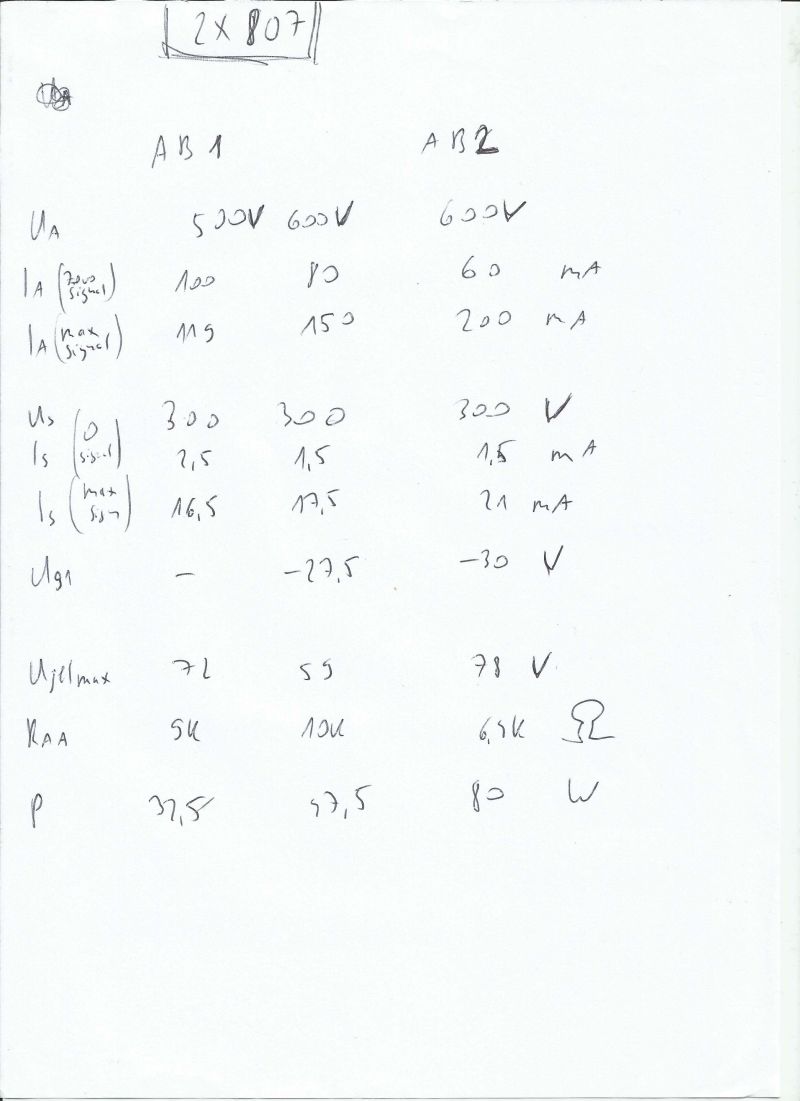 2x 807
AB1 AB2
UA 500V 600V 600V
IA (zero signal) 100 80 60 mA
IA (max signal) 119 150 200 mA
Us 300 300 300 V
Is (0 signal) 2,5 1,5 1,5 mA
Is (max sign) 16,5 17,5 21 mA
Ug1 — -27,5 -30 V
Ujelmax 72 59 78 V
RAA 9K 10K 6,4K Ω
P 32,5 47,5 80 W